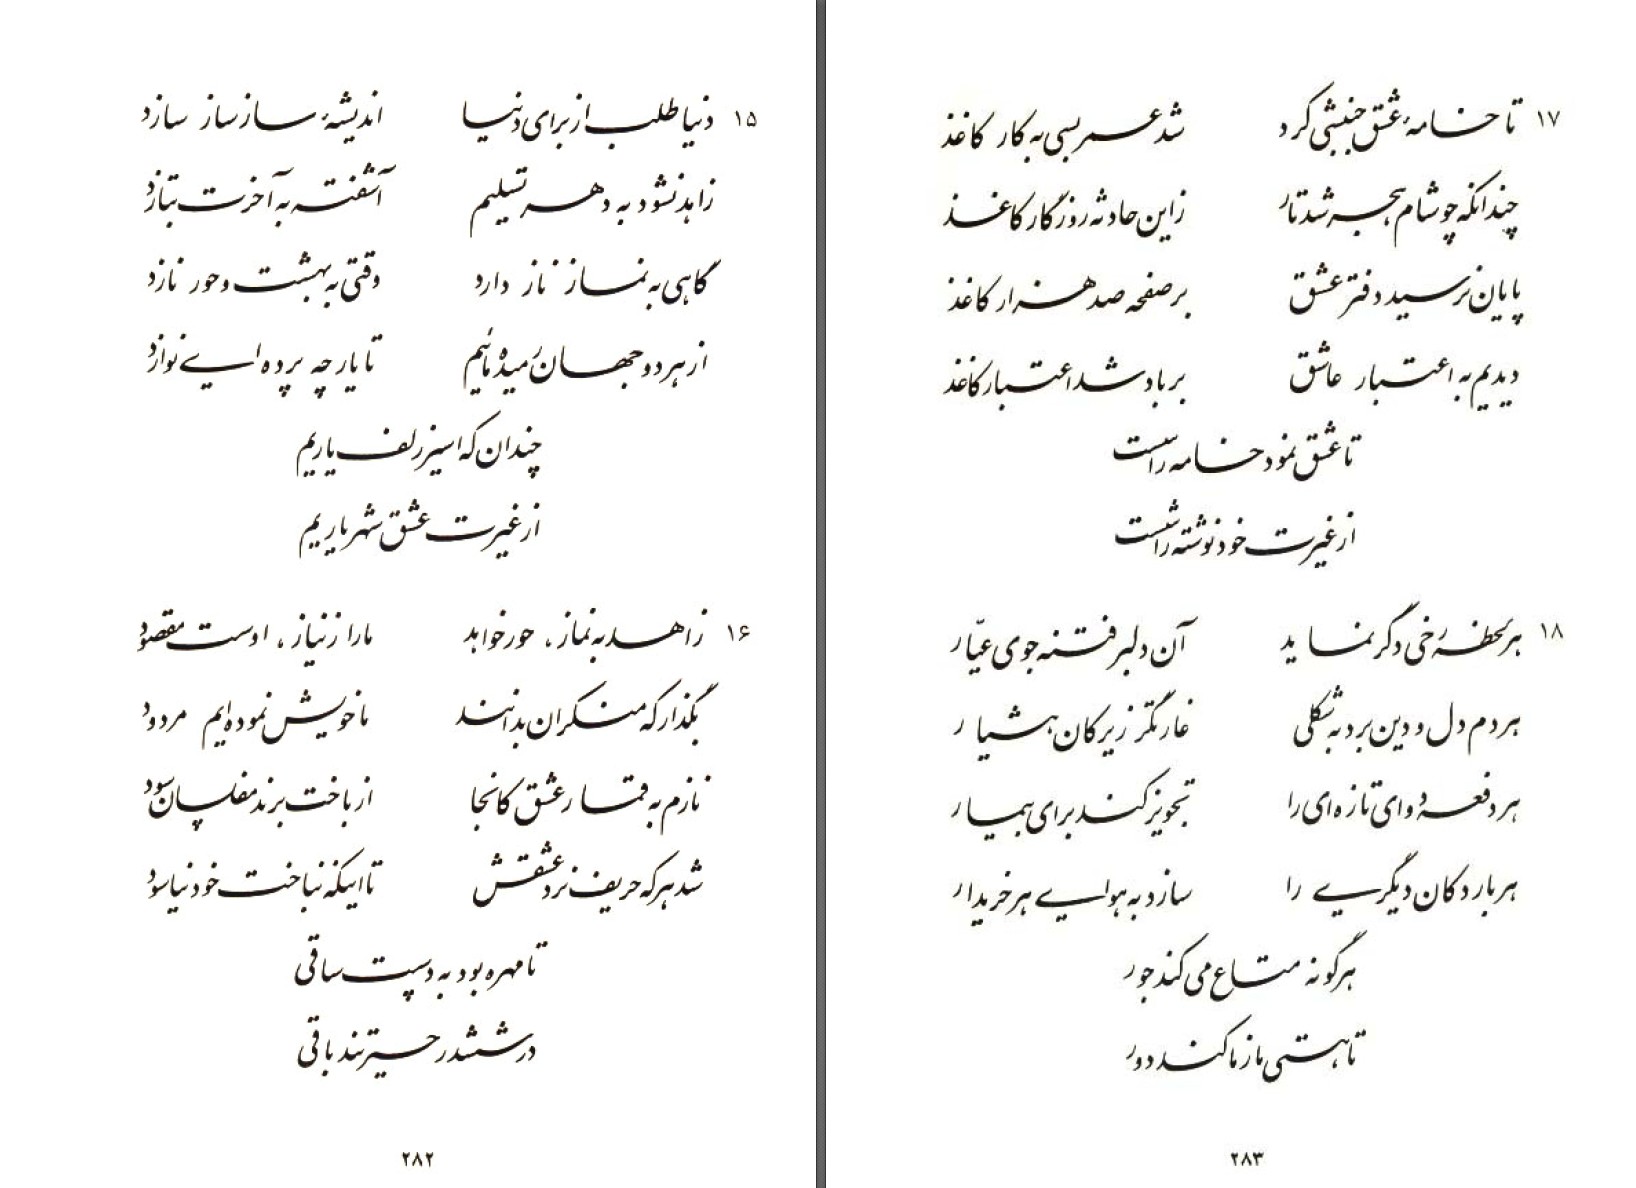 ۱۵ دنیا طلب از برای دنیا اندیشهٔ ساز ساز سازد
زاهد نشود به دهر تسلیم آشفته به آخرت بتازد
گاهی به نماز ناز دارد وقتی به بهشت و حور نازد
از هر دو جهان رمیده مائیم تا یار چه پرده‌ایی نوازد
چندان که اسیر زلف یاریم
از غیرت عشق شهریاریم
۱۶ زاهد به نماز، حور خواهد ما را ز نیاز، اوست مقصود
بگذار که منکران بدانند ما خویش نموده‌ایم مردود
نازم به قمار عشق کانجا از باخت برند مفلسان سود
شد هر که حریف نرد عشقش تا اینکه نباخت خود نیاسود
تا مهره بود به دست ساقی
در ششدر حیرتند باقی
۲۸۲
۱۷ تا خامهٔ عشق جنبشی کرد شد عمر بسی به کار کاغذ
چندانکه چو شام هجر شد تار زاین حادثه روزگار کاغذ
پایان نرسید دفتر عشق بر صفحه صد هزار کاغذ
دیدیم به اعتبار عاشق بر باد شد اعتبار کاغذ
تا عشق نمود خامه را مست
از غیرت خود نوشته را شست
۱۸ هر لحظه رخی دگر نماید آن دلبر فتنه جوی عیّار
هر دم دل و دین برد به شکلی غارتگر زیرکان هشیار
هر دفعه دوای تازه‌ای را تجویز کند برای بیمار
هر بار دکان دیگریی را سازد به هوایی هر خریدار
هرگونه متاع می کند جور
تا هستی ما ز ما کند دور
۲۸۳